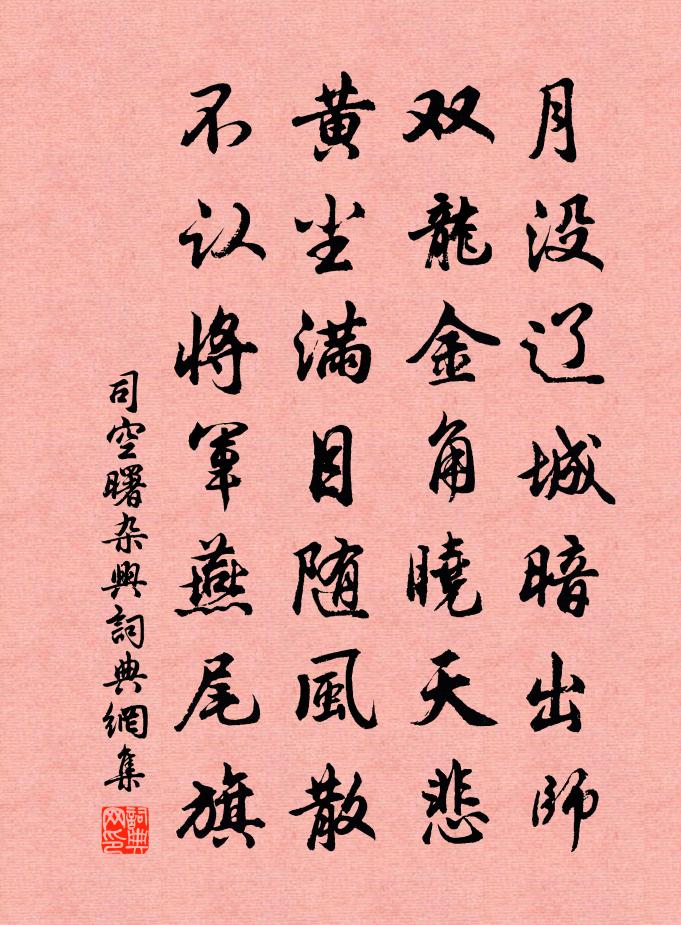 月没辽城暗出师
双龍金角曉天悲
黄尘满目随風散
不认将軍燕尾旗
司空曙杂興詞典網集
詞典网印